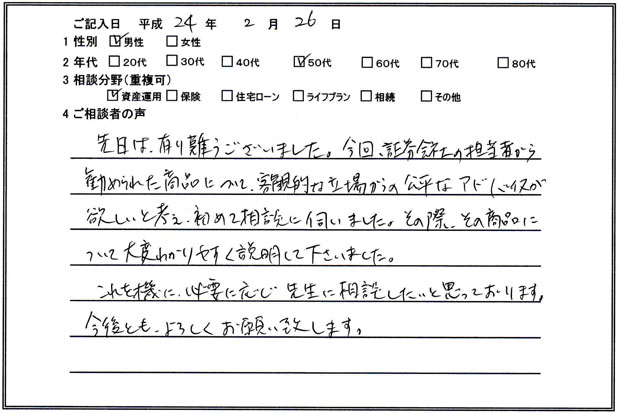 ご記入日 平成 24 年 2 月 26 日
1 性別 ☑男性 ☐女性
2 年代 ☐20代 ☐30代 ☐40代 ☑50代 ☐60代 ☐70代 ☐80代
3 相談分野(重複可)
☑資産運用 ☐保険 ☐住宅ローン ☐ライフプラン ☐相続 ☐その他
4 ご相談者の声
先日は、有り難うございました。今回、証券会社の担当者から
勧められた商品について、客観的な立場からの公平なアドバイスが
欲しいと考え、初めて相談に伺いました。その際、その商品に
ついて大変わかりやすく説明して下さいました。
これを機に、必要に応じ先生に相談したいと思っております。
今後とも、よろしくお願い致します。